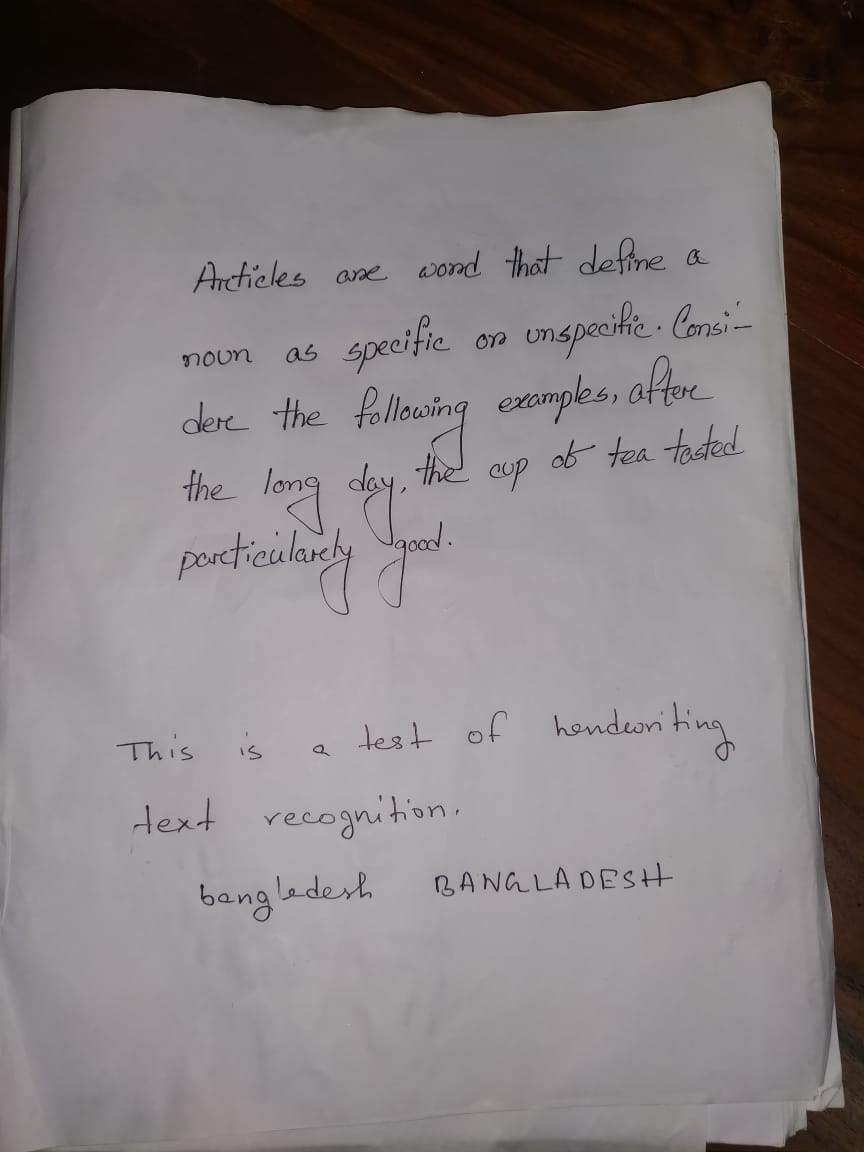 Articles are word that define a
noun as specific or unspecific. Consi-
der the following examples, after
the long day, the cup of tea tasted
particularly good.
This is a test of handwriting
text recognition.
bangladesh BANGLADESH